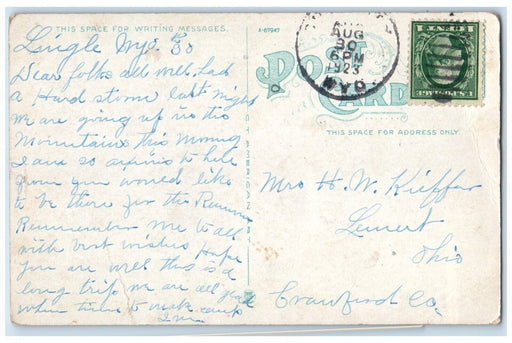 THIS SPACE FOR WRITING MESSAGES.
Lingle Wyo. 30
Dear folks all well, had
a Hard storm last night
we are going up no the
Mountains this Morning
I am so to hear
from you would like
to be there for the Reunion
Remember me to all
with best wishes Hope
you are well this is a
long trip we are all glad
when time to make camp
POST CARD
THIS SPACE FOR ADDRESS ONLY.
AUG
30
6 PM
1923
WYO.
Mrs H. W. Kieffer
Lemert
Ohio
Crawford Co.